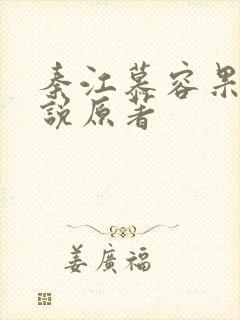 秦江慕容果
說原著
姜廣福